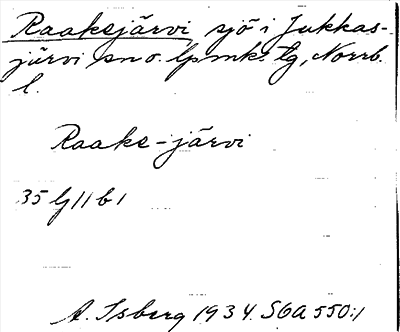 Raaksjärvi sjö i Jukkas-
järvi sn o. lpmks tg, Norrb.
l.
Raaks-järvi
35 g 11 b 1
A. Isberg 1934. SGA 550:1